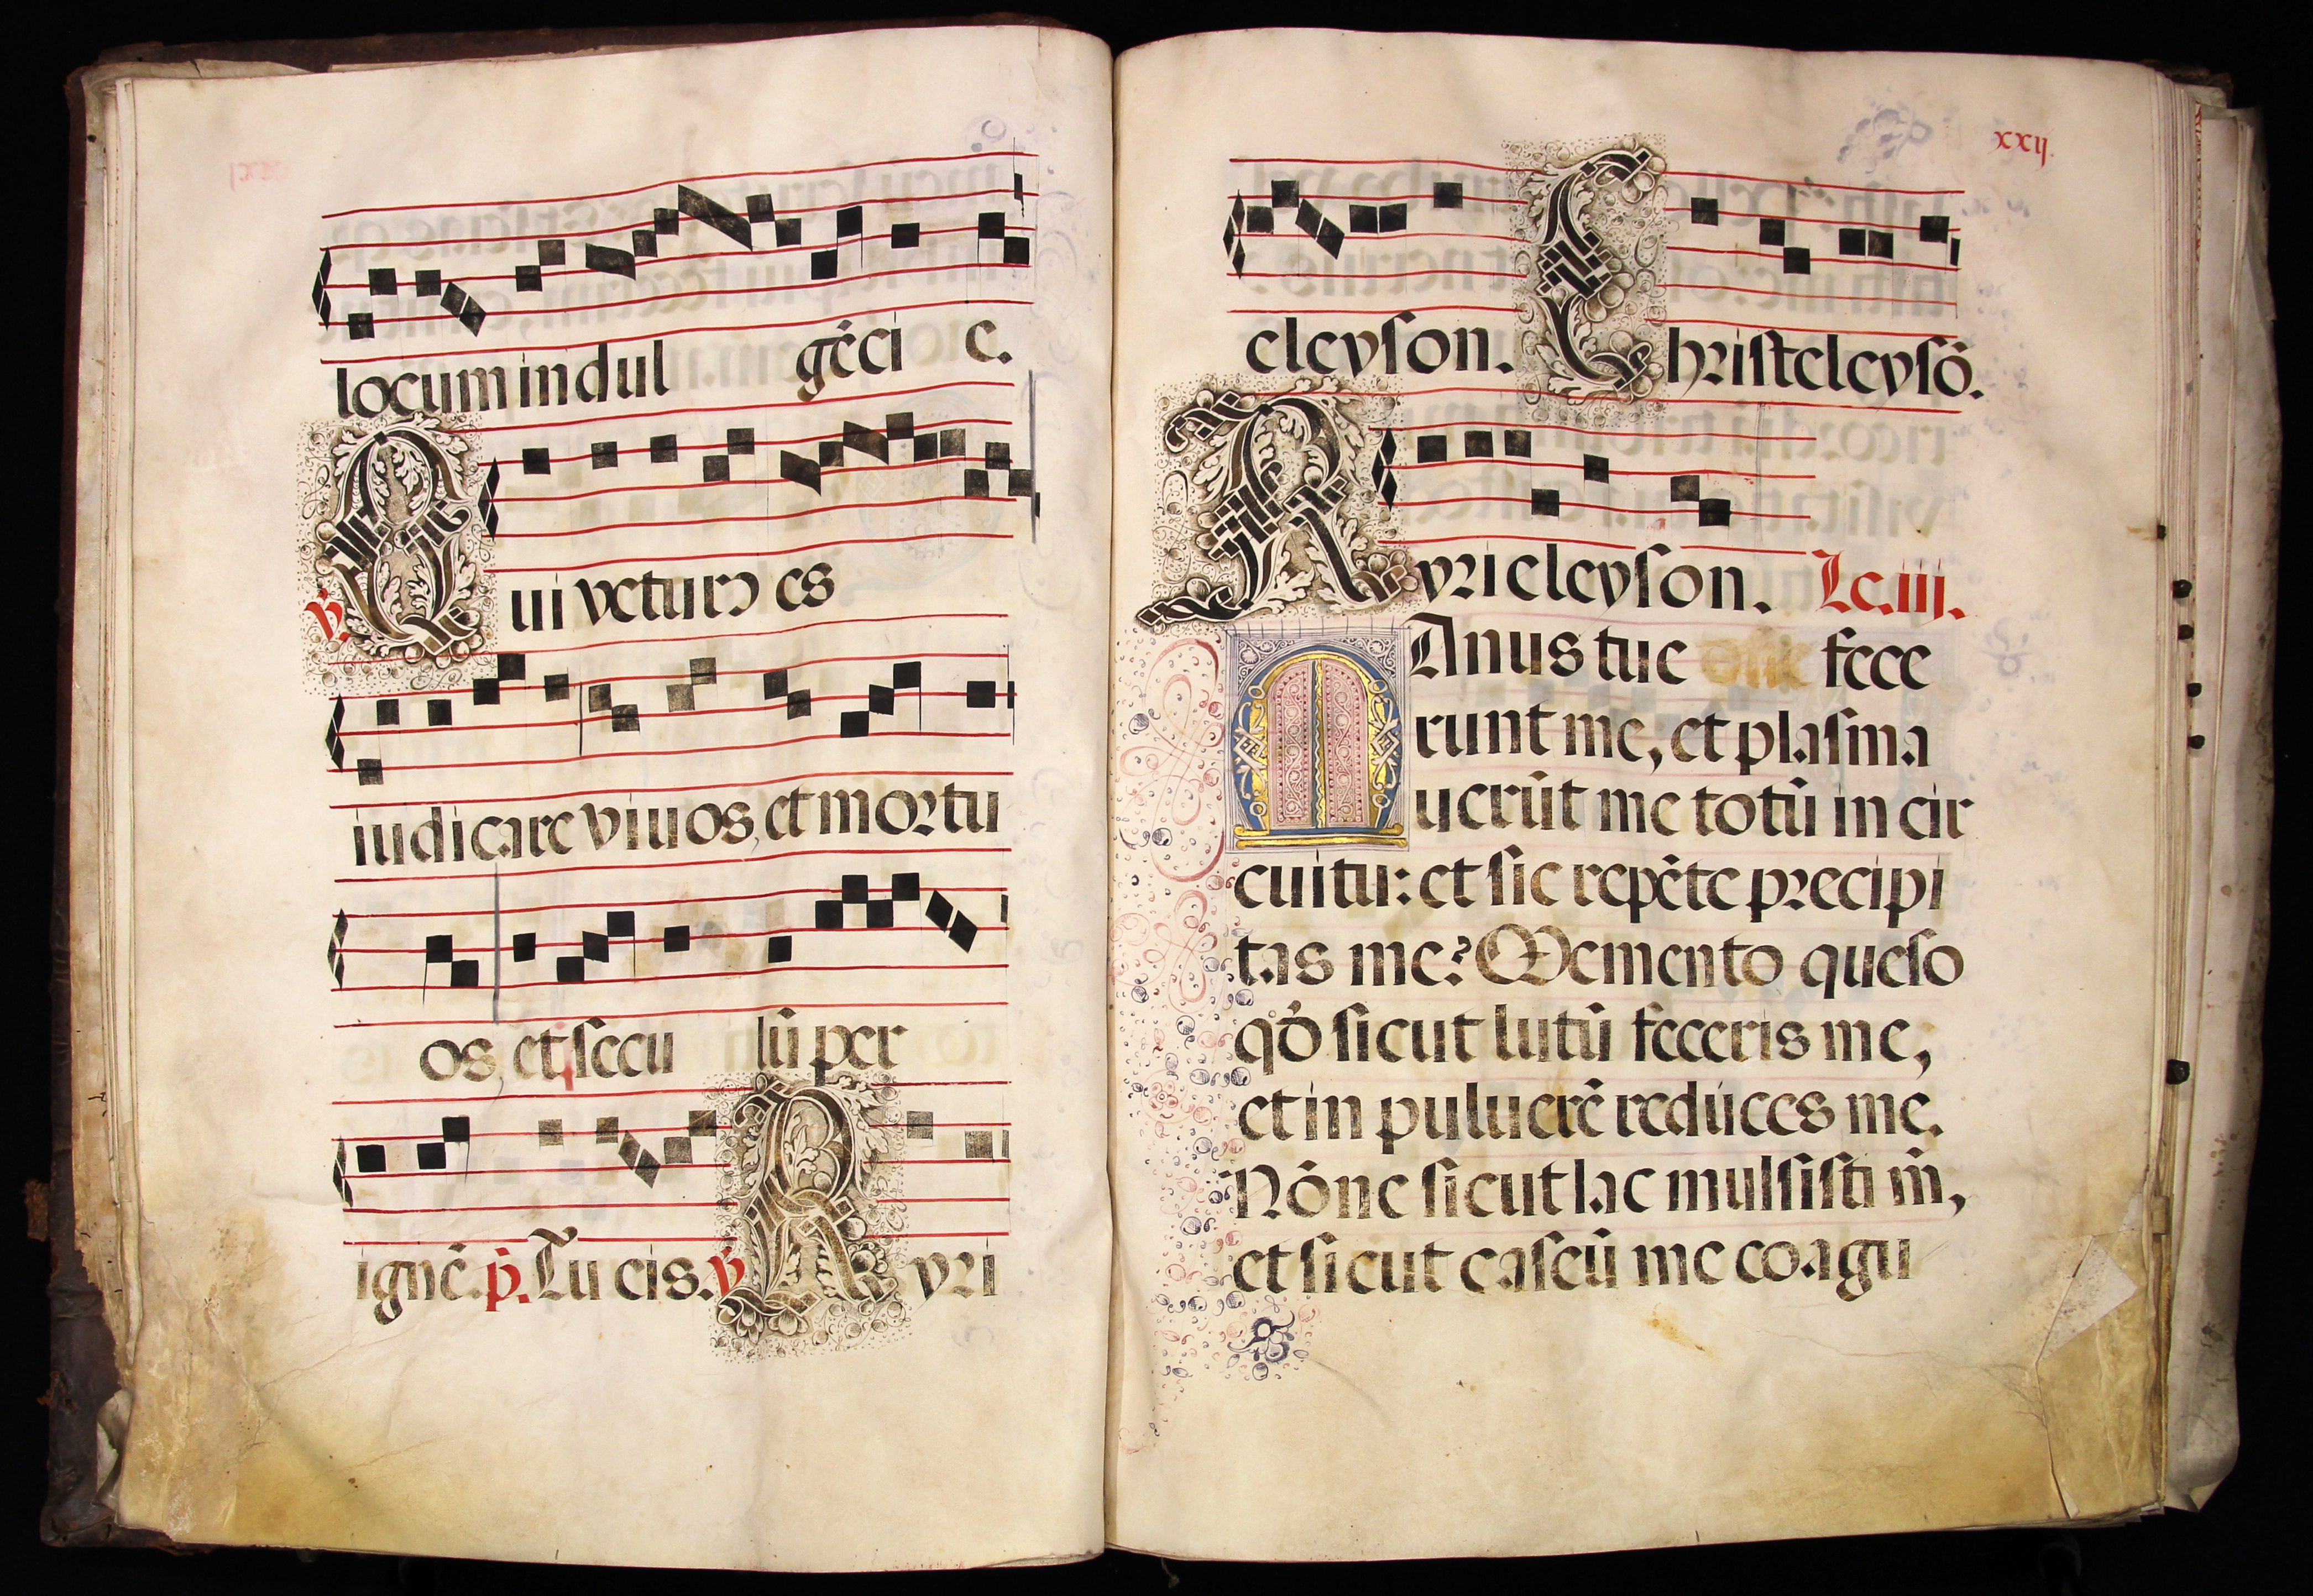 locum indul gēci e.
℣. Qui vēturꝰ es
iudicare viuos, et mortu
os, et secu lū per
ignē. p. Tu cis. ℣ Kyri
xxij.
eleyson. Christeleysō.
Kyrieleyson. Lc. iij.
Manus tue fece
runt me, et plasma
uerūt me totū in cir
cuitu: et sic repēte precipi
tas me? Memento queso
qđ sicut lutū feceris me,
et in puluerē reduces me.
Nōne sicut lac mulsisti m̄,
et sicut caseū me coagu